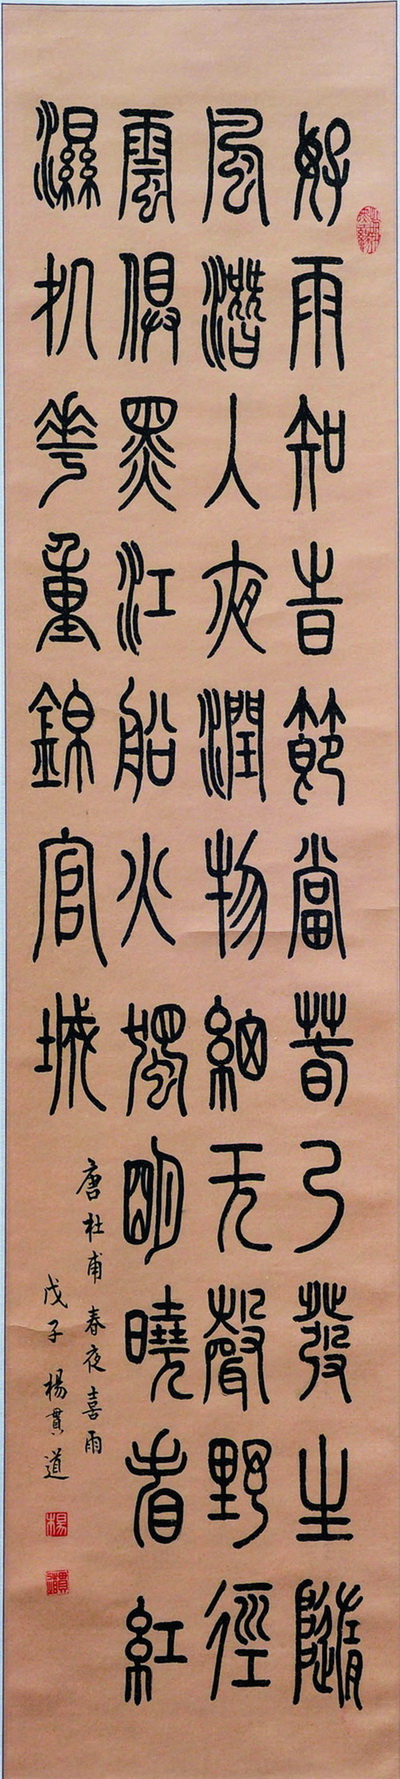 好雨知時節當春乃發生隨
風潛人夜潤物細无聲野徑
雲俱黑江船火獨明曉看紅
濕処花重錦官城
唐杜甫春夜喜雨
戊子 楊貫道
楊